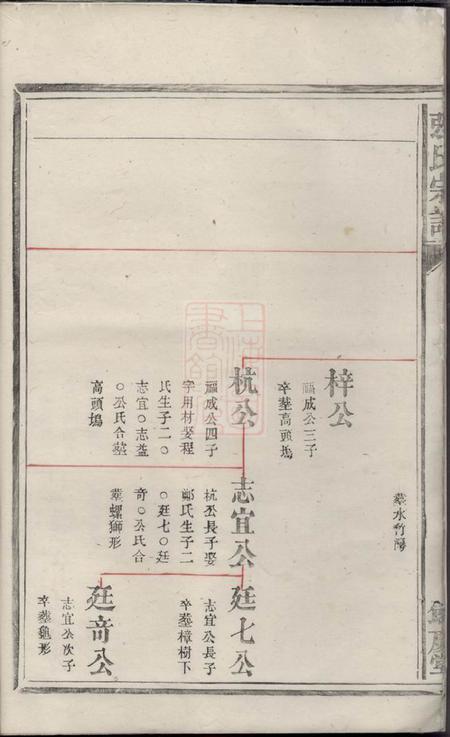 氏宗譜
葬水竹灣
梓公
福成公三子
卒葬高頭塢
杭公
福成公四子
字用材娶程
氏生子二○
志宜○志益
○公氏合葬
高頭塢
志宜公
杭公長子娶
鄭氏生子二
○廷七○廷
奇○公氏合
葬螺獅形
廷七公
志宜公長子
卒葬樟樹下
廷奇公
志宜公次子
卒葬龜形
上海圖書館藏